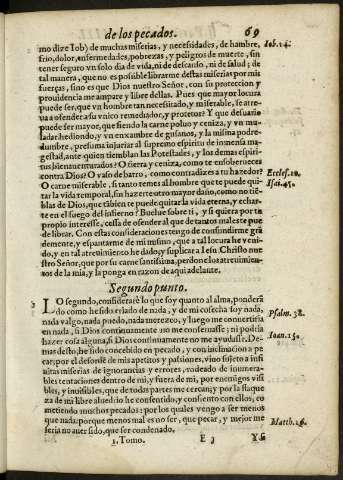 de los pecados. 69
mo dize Iob) de muchas miserias, y necessidades, de hambre, Iob.14.
frio, dolor, enfermedades, pobrezas, y peligros de muerte, sin
tener seguro vn solo dia de vida, ni de descanso, ni de salud; de
tal manera, que no es possible librarme destas miserias por mis
fuerças, sino es que Dios nuestro Señor, con su proteccion y
prouidencia me ampare y libre dellas. Pues que mayor locura
puede ser, que vn hombre tan necessitado, y miserable, se atre-
ua a ofender a su vnico remediador, y protetor? Y que desuario
puede ser mayor, que siendo la carne poluo y ceniza, y vn mu-
ladar hediondo, y vn enxambre de gusanos, y la misma podre-
dumbre, presuma injuriar al supremo espiritu de inmensa ma-
gestad, ante quien tiemblan las Potestades, y los demas espiri-
tus bienauenturados? O tierra y ceniza, como te ensoberueces
contra Dios? O vaso de barro, como contradizes a tu hazedor? Eccles.10.
O carne miserable, si tanto temes al hombre que te puede qui- Isai.45.
tar la vida temporal, sin hazerte otro mayor daño, como no tiẽ-
blas de Dios, que tãbien te puede quitar la vida eterna, y echar-
te en el fuego del infierno? Buelue sobre ti, y si quiera por tu
propio interesse, cessa de ofender al que de tantos males te pue-
de librar. Con estas consideraciones tengo de confundirme grã
demente, y espantarme de mi mismo, que a tal locura he veni-
do, y en tal atreuimiento he dado; y suplicar a Iesu Christo nue-
stro Señor, que por su carne santissima, perdone los atreuimien-
tos de la mia, y la ponga en razon de aqui adelante.
Segundo punto.
LO segundo, considerarè lo que soy quanto al alma, ponderã
do como he sido criado de nada, y de mi cosecha soy nada, Psalm.38.
nada valgo, nada puedo, nada merezco, y luego me conuertiria
en nada, si Dios continuamente no me conseruasse; ni podria
hazer cosa alguna, si Dios continuamente no me ayudasse. De- Ioan.15.
mas desto, he sido concebido en pecado, y con inclinacion a pe-
car; por el desorde de mis apetitos y passiones, viuo sujeto a infi
nitas miserias de ignorancias y errores, rodeado de innumera-
bles tentaciones dentro de mi, y fuera de mi, por enemigos visi
bles, y inuisibles, que de todas partes me cercan; y por la flaque
za de mi libre aluedrio he consentido, y consiento con ellos, co
metiendo muchos pecados: por los quales vengo a ser menos
que nada: porque menos mal es no ser, que pecar, y mejor me Matth.26.
seria no auer sido, que ser condenado.
1. Tomo. E 3